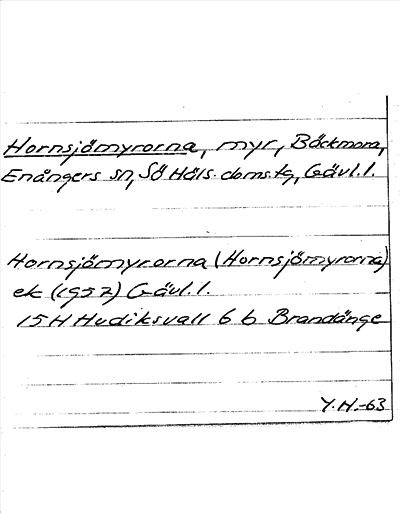 Hornsjömyrorna, myr, Bäckmora,
Enångers sn, Sö Häls. doms.tg, Gävl.l.
Hornsjömyrorna (Hornsjömyrorna)
ek (1957) Gävl.l.
15H Hudiksvall 6 b Brandänge
Y.H.-63